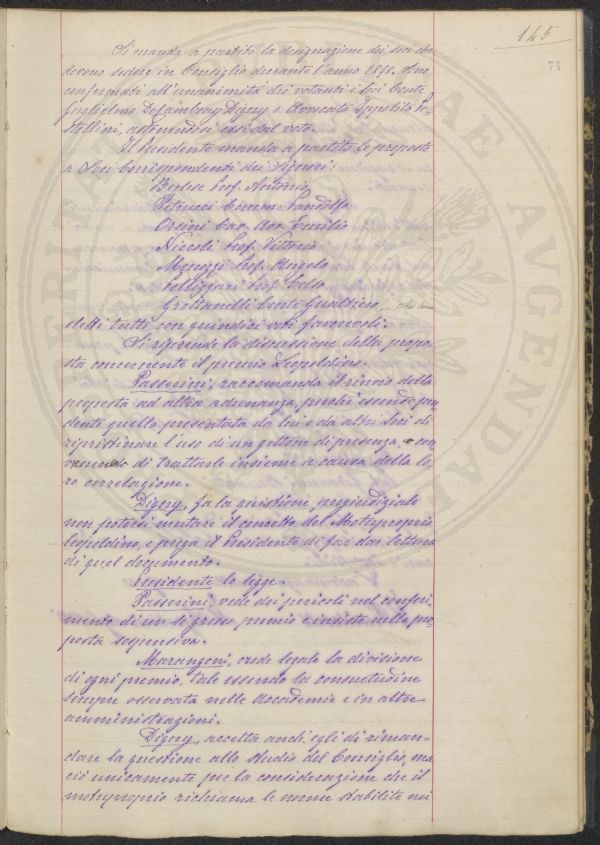 145
74
Si manda a partito la designazione dei Soci che
devono sedere in Consiglio durante l'anno 1898. Sono
confermati all'unanimità dei votanti i Soci Conte
Guglielmo De Cambray Digny e Avvocato Ippolito Pe-
stellini, astenendosi essi dal voto.
Il Presidente manda a partito le proposte
a Soci Corrispondenti dei Signori:
Berlese Prof. Antonio
Petrucci Comm. Pandolfo
Orsini Cav. Avv. Emilio
Niccoli Prof. Vittorio
Menozzi Prof. Angelo
Pellizzari Prof. Celso
Grottanelli Conte Gualtiero,
eletti tutti con quindici voti favorevoli.
Si riprende la discussione della propo-
sta concernente il premio Leopoldino.
Passerini, raccomanda il rinvio della
proposta ad altra adunanza, perchè essendo pen-
dente quella presentata da lui e da altri Soci di
ripristinare l'uso di un gettone di presenza, con-
venendo di trattarle insieme a causa della lo-
ro correlazione.
Digny, fa la quistione pregiudiziale
non potersi mutare il concetto del Motuproprio
Leopoldino, e prega il Presidente di far dar lettura
di quel documento.
Presidente lo legge.
Passerini, vede dei pericoli nel conferi-
mento di un sì grosso premio e insiste nella pro-
posta sospensiva.
Marangoni, crede legale la divisione
di ogni premio, tale essendo la consuetudine
sempre osservata nelle Accademie e in altre
amministrazioni.
Digny, accetta anch'egli di riman-
dare la questione allo studio del Consiglio, ma
ciò unicamente per la considerazione che il
motuproprio richiama le norme stabilite nei